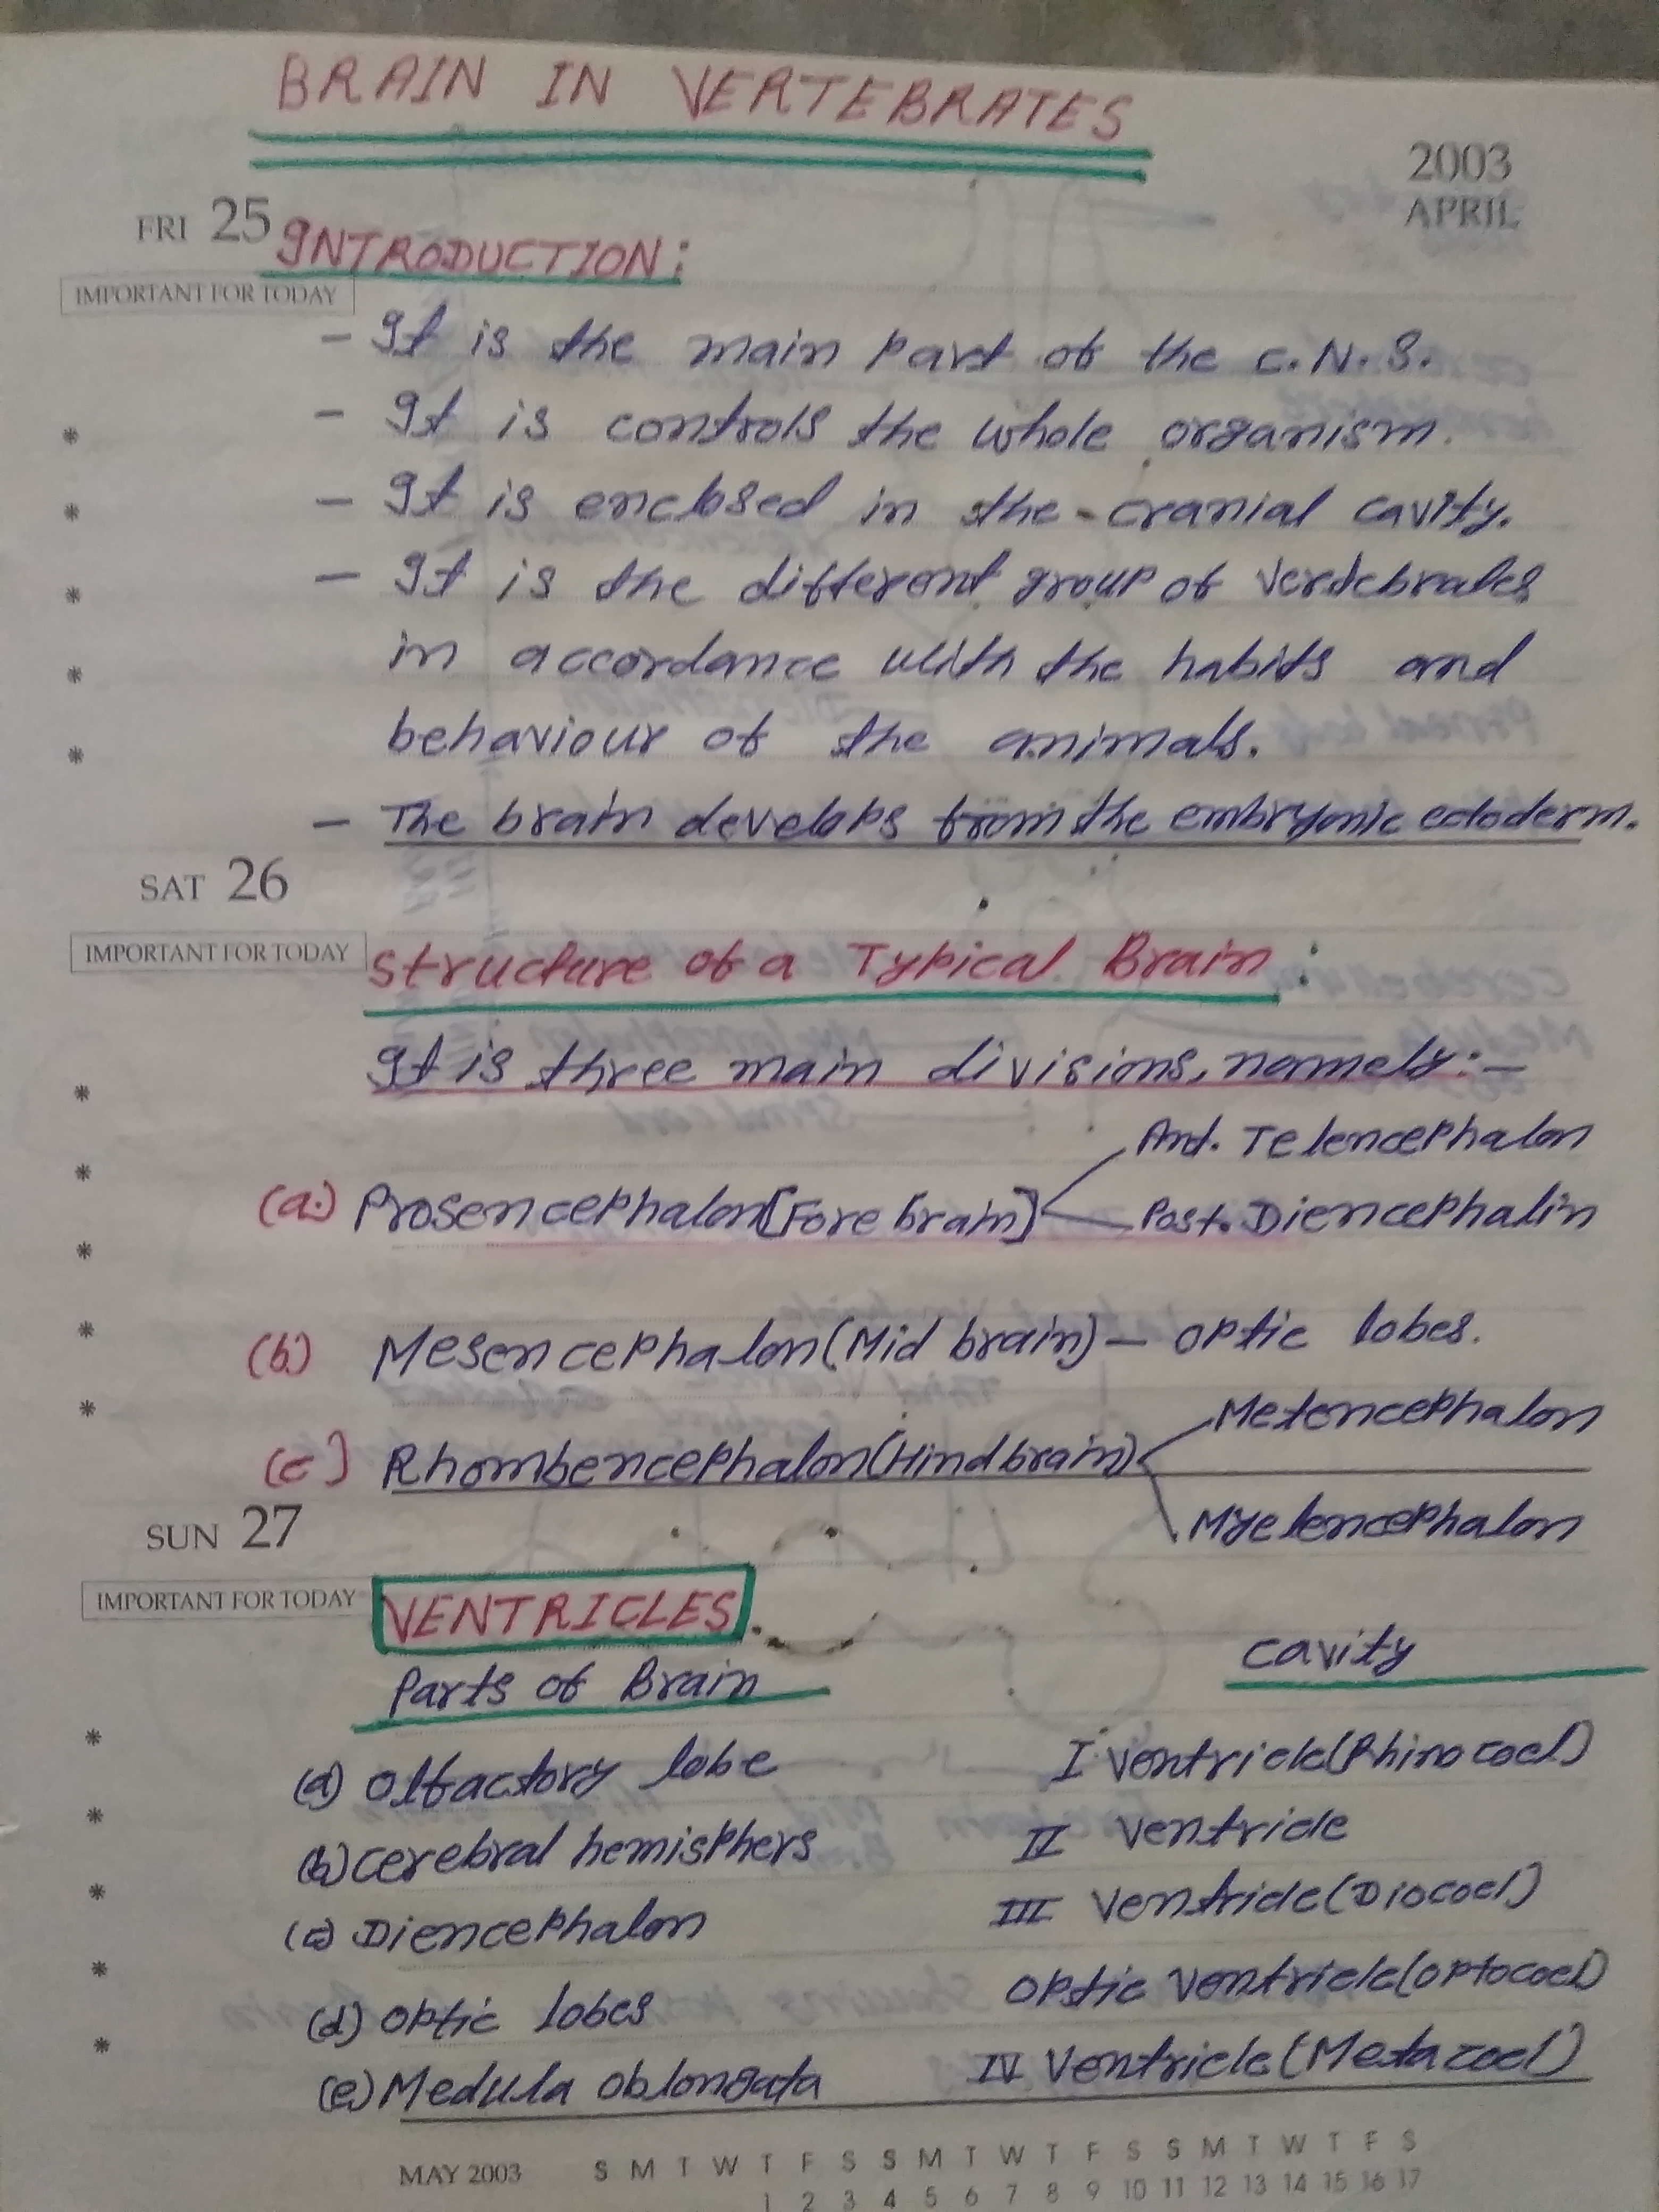 BRAIN IN VERTEBRATES
2003
APRIL
FRI 25
INTRODUCTION:
IMPORTANT FOR TODAY
- It is the main part of the C.N.S.
- It is controls the whole organism.
- It is enclosed in the cranial cavity.
- It is the different group of vertebrates
in accordance with the habits and
behaviour of the animals.
- The brain develops from the embryonic ectoderm.
SAT 26
IMPORTANT FOR TODAY
Structure of a Typical Brain:
It is three main divisions, namely:-
Ant. Telencephalon
(a) Prosencephalon[Fore brain]
Post. Diencephalin
(b) Mesencephalon(Mid brain) - optic lobes.
Metencephalon
(c) Rhombencephalon(Hind brain)
Myelencephalon
SUN 27
IMPORTANT FOR TODAY
VENTRICLES
Parts of Brain cavity
(a) Olfactory lobe I ventricle(Rhinocoel)
(b) cerebral hemisphers II ventricle
(c) Diencephalon III Ventricle(Diocoel)
(d) optic lobes optic ventricle(optocoel)
(e) Medulla oblongata IV Ventricle(Metacoel)
MAY 2003 S M T W T F S S M T W T F S S M T W T F S
1 2 3 4 5 6 7 8 9 10 11 12 13 14 15 16 17